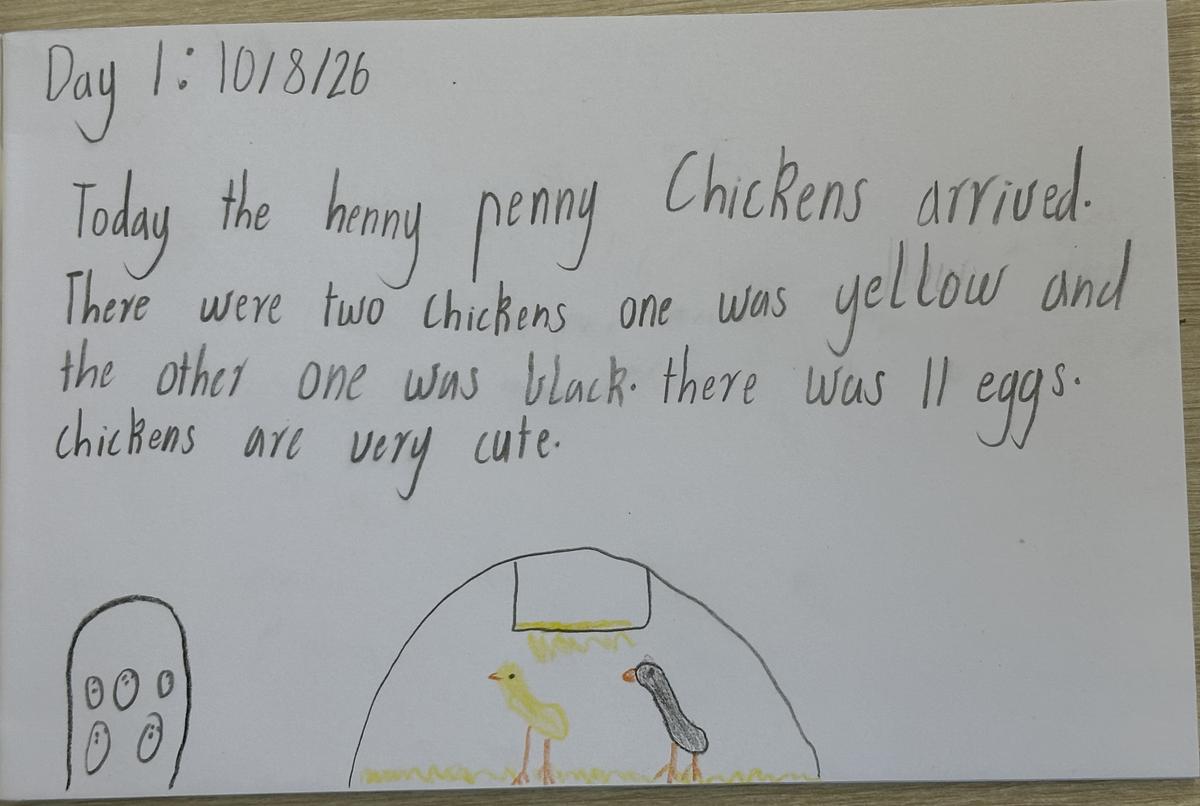 Day 1: 10/8/26
Today the henny penny Chickens arrived.
There were two chickens one was yellow and
the other one was black. there was 11 eggs.
chickens are very cute.